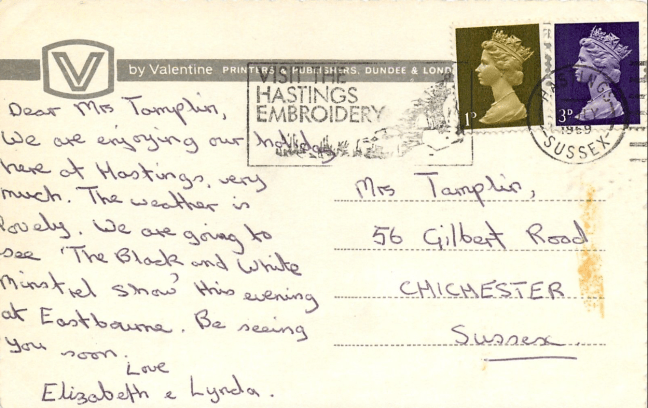 V
by Valentine PRINTERS & PUBLISHERS, DUNDEE & LOND
VISIT THE
HASTINGS
EMBROIDERY
1P
3D
HASTINGS
1969
SUSSEX
Dear Mrs Tamplin,
We are enjoying our holiday
here at Hastings, very
much. The weather is
lovely. We are going to
see 'The Black and White
Minstrel Show' this evening
at Eastbourne. Be seeing
you soon.
Love
Elizabeth & Lynda.
Mrs Tamplin,
56 Gilbert Road
CHICHESTER
Sussex.